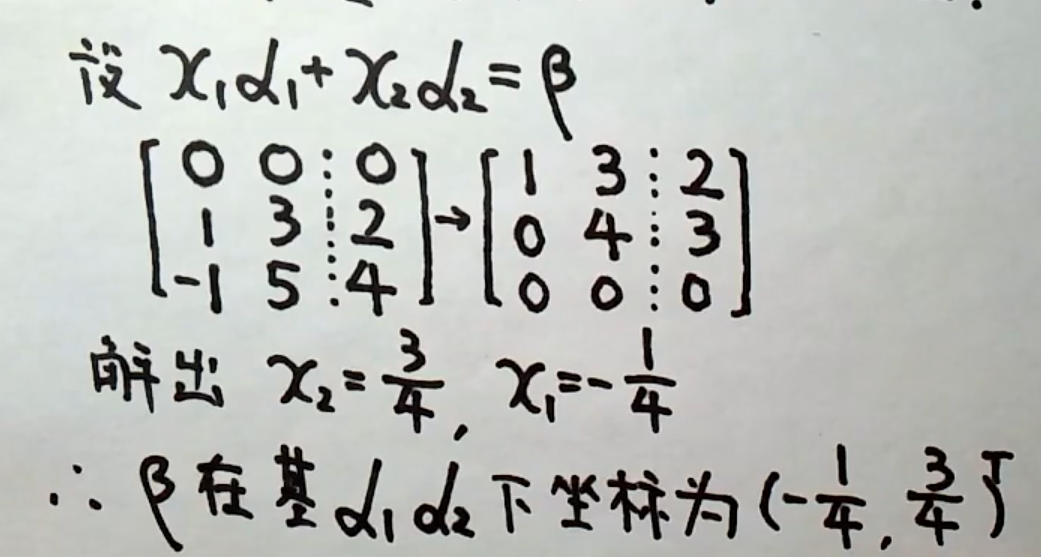 设 x₁α₁+x₂α₂=β
[0 0 ⋮ 0; 1 3 ⋮ 2; -1 5 ⋮ 4] → [1 3 ⋮ 2; 0 4 ⋮ 3; 0 0 ⋮ 0]
解出 x₂=3/4, x₁=-1/4
∴ β在基α₁α₂下坐标为(-1/4, 3/4)ᵀ